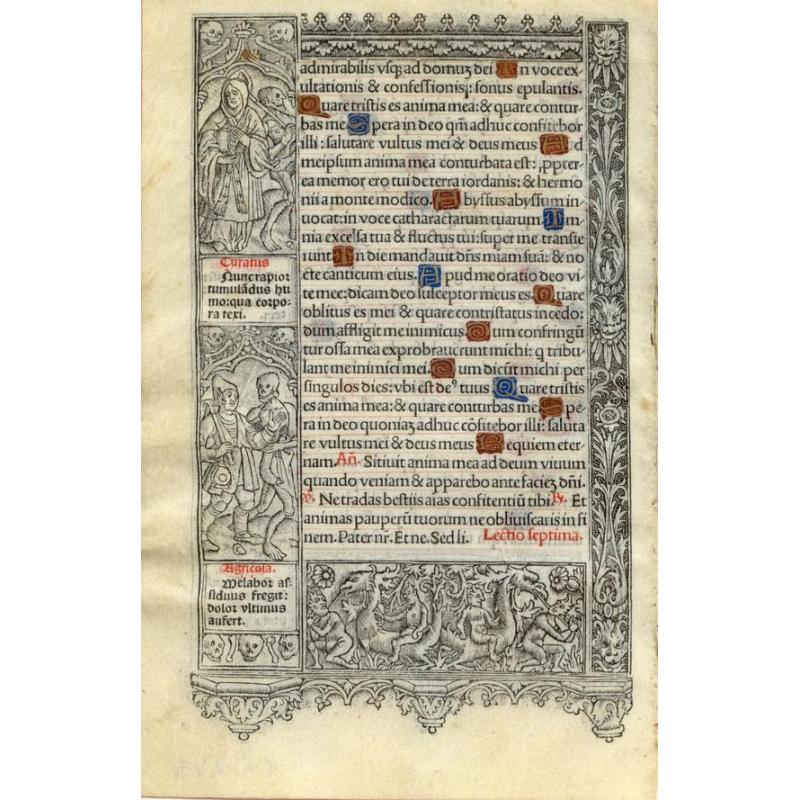 admirabilis vsqȝ ad domuȝ dei In voce ex
ultationis & confessionis: sonus epulantis.
Quare tristis es anima mea: & quare contur-
bas me Spera in deo qm̄ adhuc confitebor
illi: salutare vultus mei & deus meus Ad
meipsum anima mea conturbata est: ꝓpter
ea memor ero tui de terra iordanis: & hermo
nii a monte modico. Abyssus abyssum in-
uocat: in voce catharactarum tuarum. Om
nia excelsa tua & fluctus tui: super me transie
runt In die mandauit dn̄s miam suā: & no
cte canticum eius. Apud me oratio deo vi-
te mee: dicam deo susceptor meus es. Quare
oblitus es mei & quare contristatus incedo:
dum affligit me inimicus. Dum confringū
tur ossa mea exprobrauerunt michi: q tribu
lant me inimici mei. Dum dicūt michi per
singulos dies: vbi est deꝰ tuus Quare tristis
es anima mea: & quare conturbas me. Spe
ra in deo quoniaȝ adhuc cōfitebor illi: saluta
re vultus mei & deus meus Requiem eter-
nam. Añ. Sitiuit anima mea ad deum viuum
quando veniam & apparebo ante facieȝ dn̄i.
℣. Ne tradas bestiis aīas confitentiū tibi. ℟. Et
animas pauperū tuorum ne obliuiscaris in fi
nem. Pater nr̄. Et ne. Sed li. Lectio septima.
Curatus
Nunc rapior
tumulādus hu
mo: qua corpo-
ra texi.
Agricola.
Me labor as-
siduus fregit:
dolor vltimus
aufert.